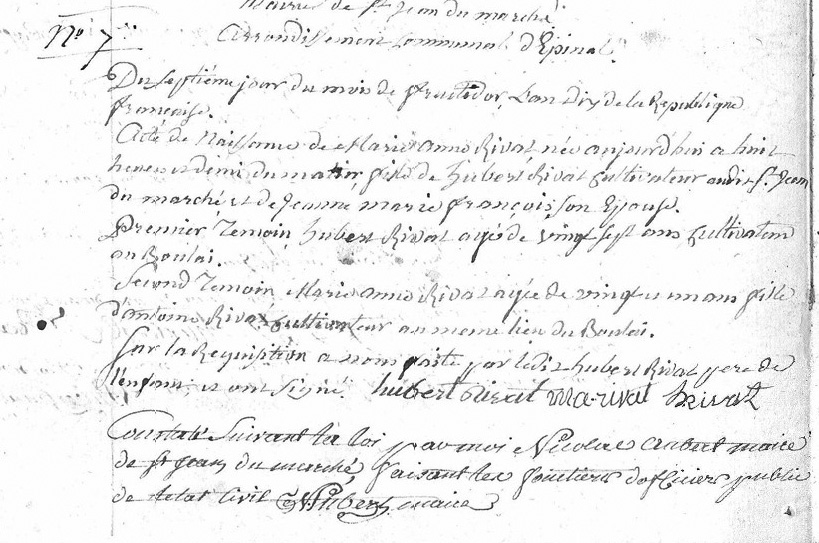 Mairie de St Jean du marché
No 7
Arrondissement Communal d'Epinal.
Du septième jour du mois de fructidor, L'an Dix de la Republique
françoise.
Acte de Naissance de Marie anne Rivat née aujourd'hui a huit
heures et demi du matin fille de hubert Rivat Cultivateur audit St. Jean
du marché et de jeanne marie françois son Epouse.
Premier Temoin, hubert Rivat agé de vingt sept ans Cultivateur
au Boulai.
Second Temoin Marie anne Rivat agée de vingt un ans fille
d'antoine Rivat Cultivateur au meme lieu du Boulai.
Sur la Requisition a nous faite par ledit hubert Rivat pere de
l'enfant et ont signé. hubert Rivat ma-rivat hRivat
Constaté Suivant la loi par moi Nicolas aubert maire
de st jean du marché, faisant les fonctions dofficier public
de letat Civil NAubert maire